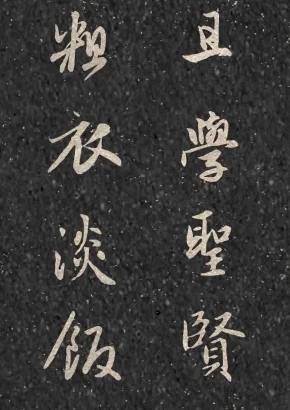 且學聖賢
粗衣淡飯